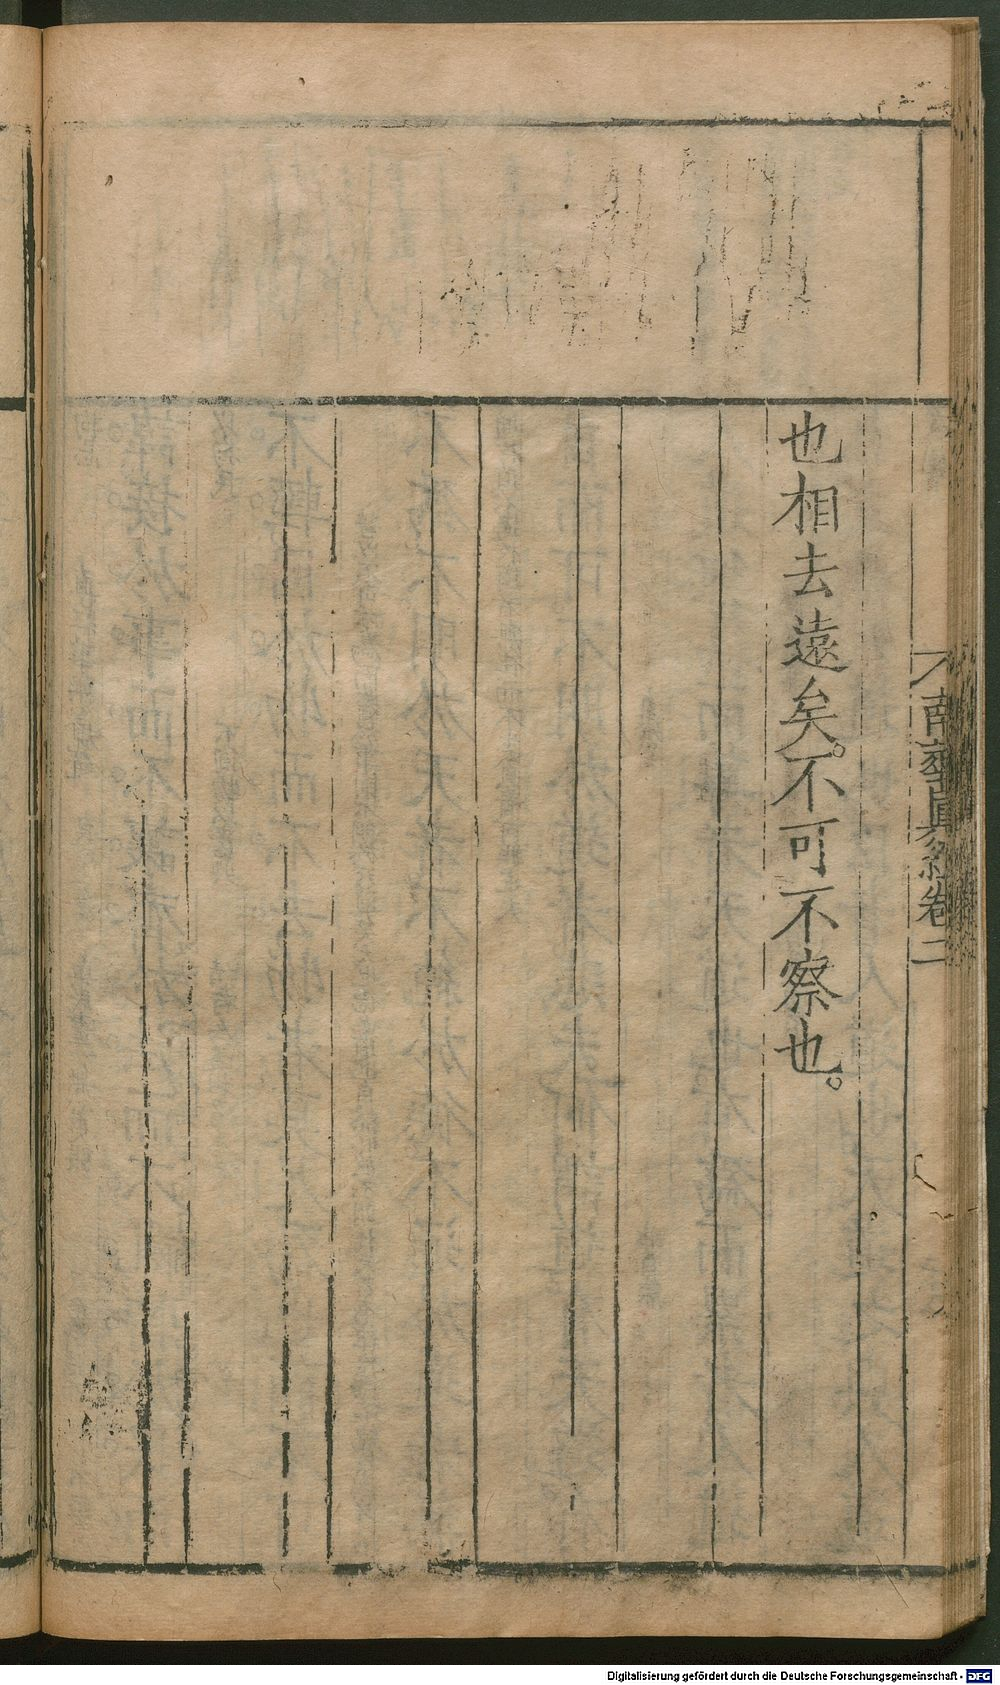 也相去遠矣。不可不察也。
南華眞經卷二
Digitalisierung gefördert durch die Deutsche Forschungsgemeinschaft - DFG